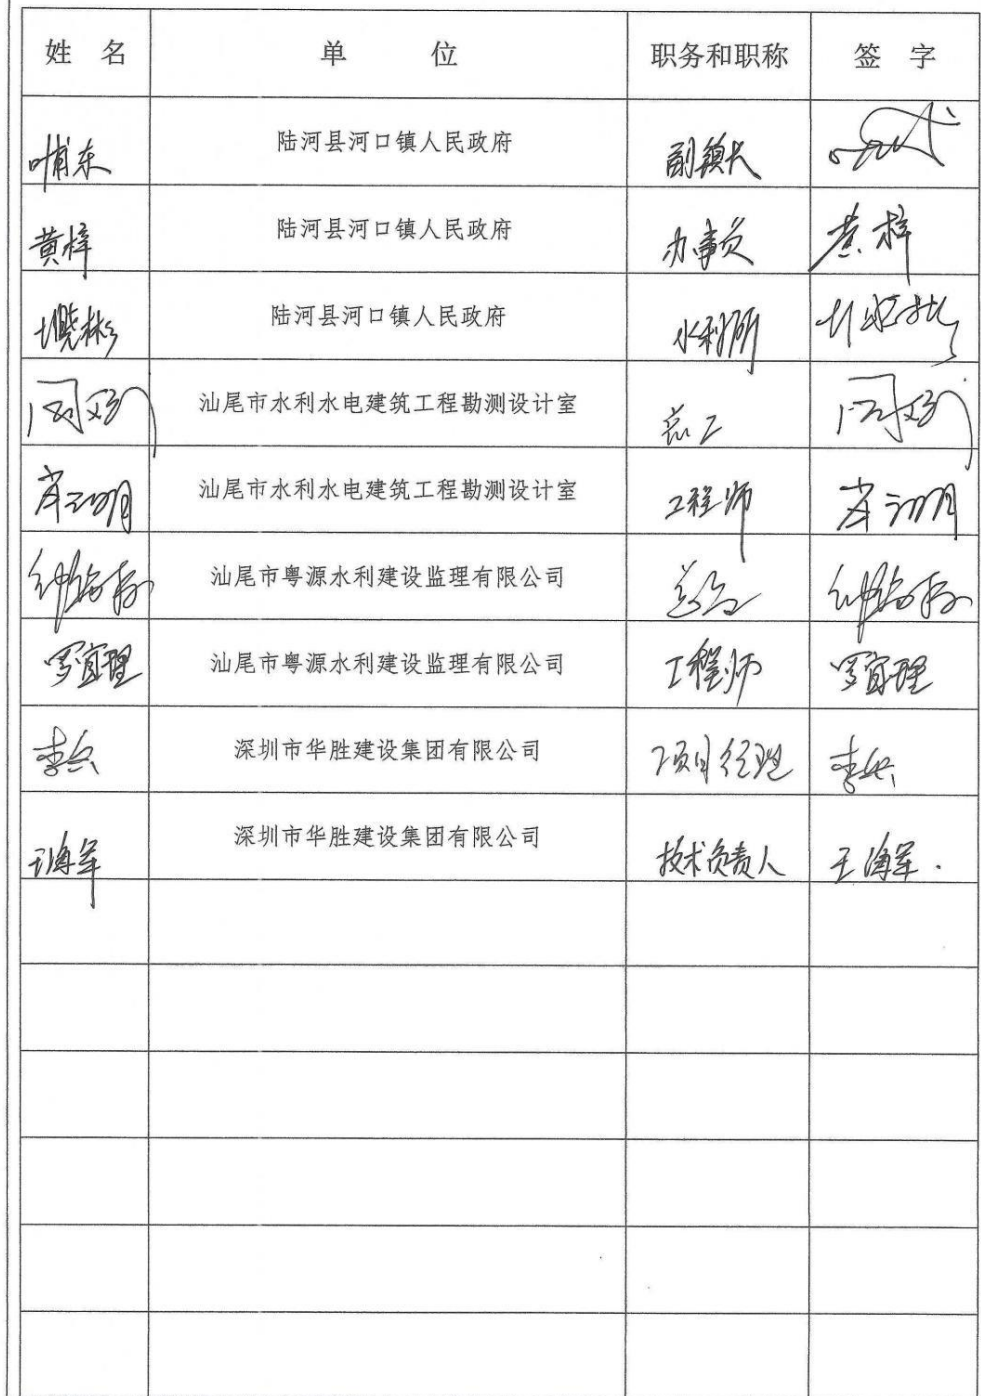 姓 名 单 位 职务和职称 签 字
陆河县河口镇人民政府 副镇长
黄梓 陆河县河口镇人民政府 办事员 黄梓
陆河县河口镇人民政府 水利所
汕尾市水利水电建筑工程勘测设计室
汕尾市水利水电建筑工程勘测设计室 工程师
汕尾市粤源水利建设监理有限公司 总监
罗宜理 汕尾市粤源水利建设监理有限公司 工程师 罗宜理
李兵 深圳市华胜建设集团有限公司 项目经理 李兵
王海军 深圳市华胜建设集团有限公司 技术负责人 王海军.